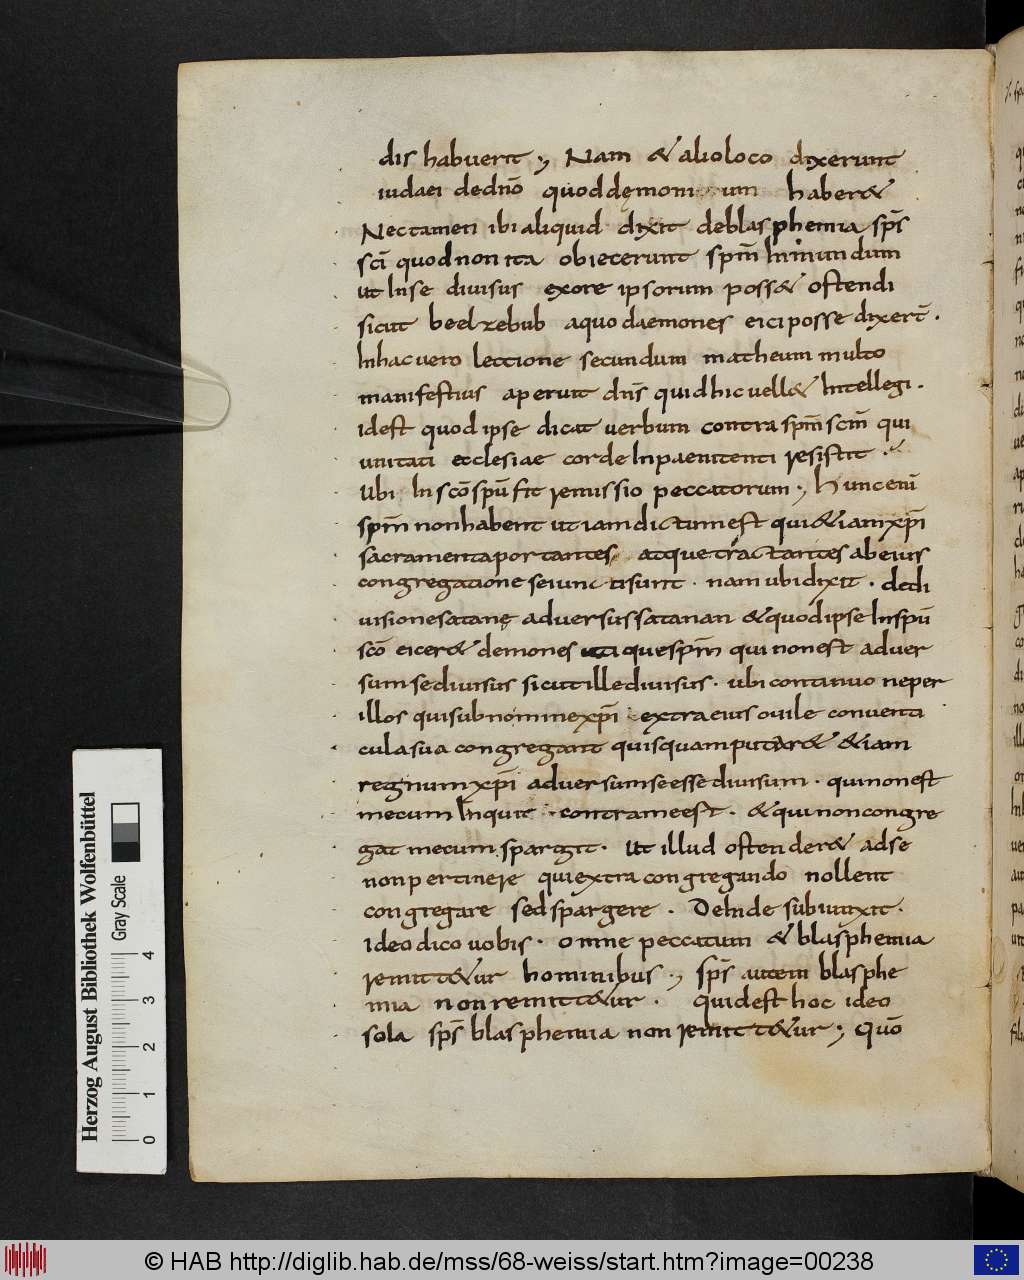 dis habuerit ; Nam & alio loco dixerunt
iudaei de dnō quod dęmonium haber&
Nec tamen ibi aliquid dixit de blasphemia sp̄s
sc̄i quod non ita obiecerunt sp̄m Inmundum
ut Inse diuisus exore ipsorum poss& ostendi
sicut beelzebub a quo daemones eici posse dixer̄t .
In hac uero lectione secundum matheum multo
manifestius aperuit dn̄s quid hic uell& Intellegi .
idest quod ipse dicat uerbum contra sp̄m sc̄m qui
unitati ecclesiae corde Inpaenitenti resistit .
Ubi In scō spū fit remissio peccatorum ; hunc eni̅
sp̄m non habent ut iam dictum est qui & iam xp̄i
sacramenta portantes atque tractantes ab eius
congregatione seiuncti sunt . nam ubi dixit . de di
uisione satanę aduersus satanan & quod ipse In spū
scō eicer& demones utique sp̄m qui non est aduer
sum se diuisus sicut ille diuisus . ubi continuo ne per
illos qui sub nomine xp̄i extra eius ouile conuenti
cula sua congregant quisquam putar& & iam
regnum xp̄i aduersum se esse diuisum . qui non est
mecum Inquit . contra me est . & qui non congre
gat mecum spargit . Ut illud ostender& ad se
non pertinere qui extra congregando nollent
congregare sed spargere . DeInde subiunxit .
Ideo dico uobis . omne peccatum & blasphemia
remitt&ur hominibus . ; sp̄s autem blasphe
mia non remitt&ur . quid est hoc ideo
sola sp̄s blasphemia non remitt&ur ; quō
Herzog August Bibliothek Wolfenbüttel
Gray Scale
0 1 2 3 4
© HAB http://diglib.hab.de/mss/68-weiss/start.htm?image=00238